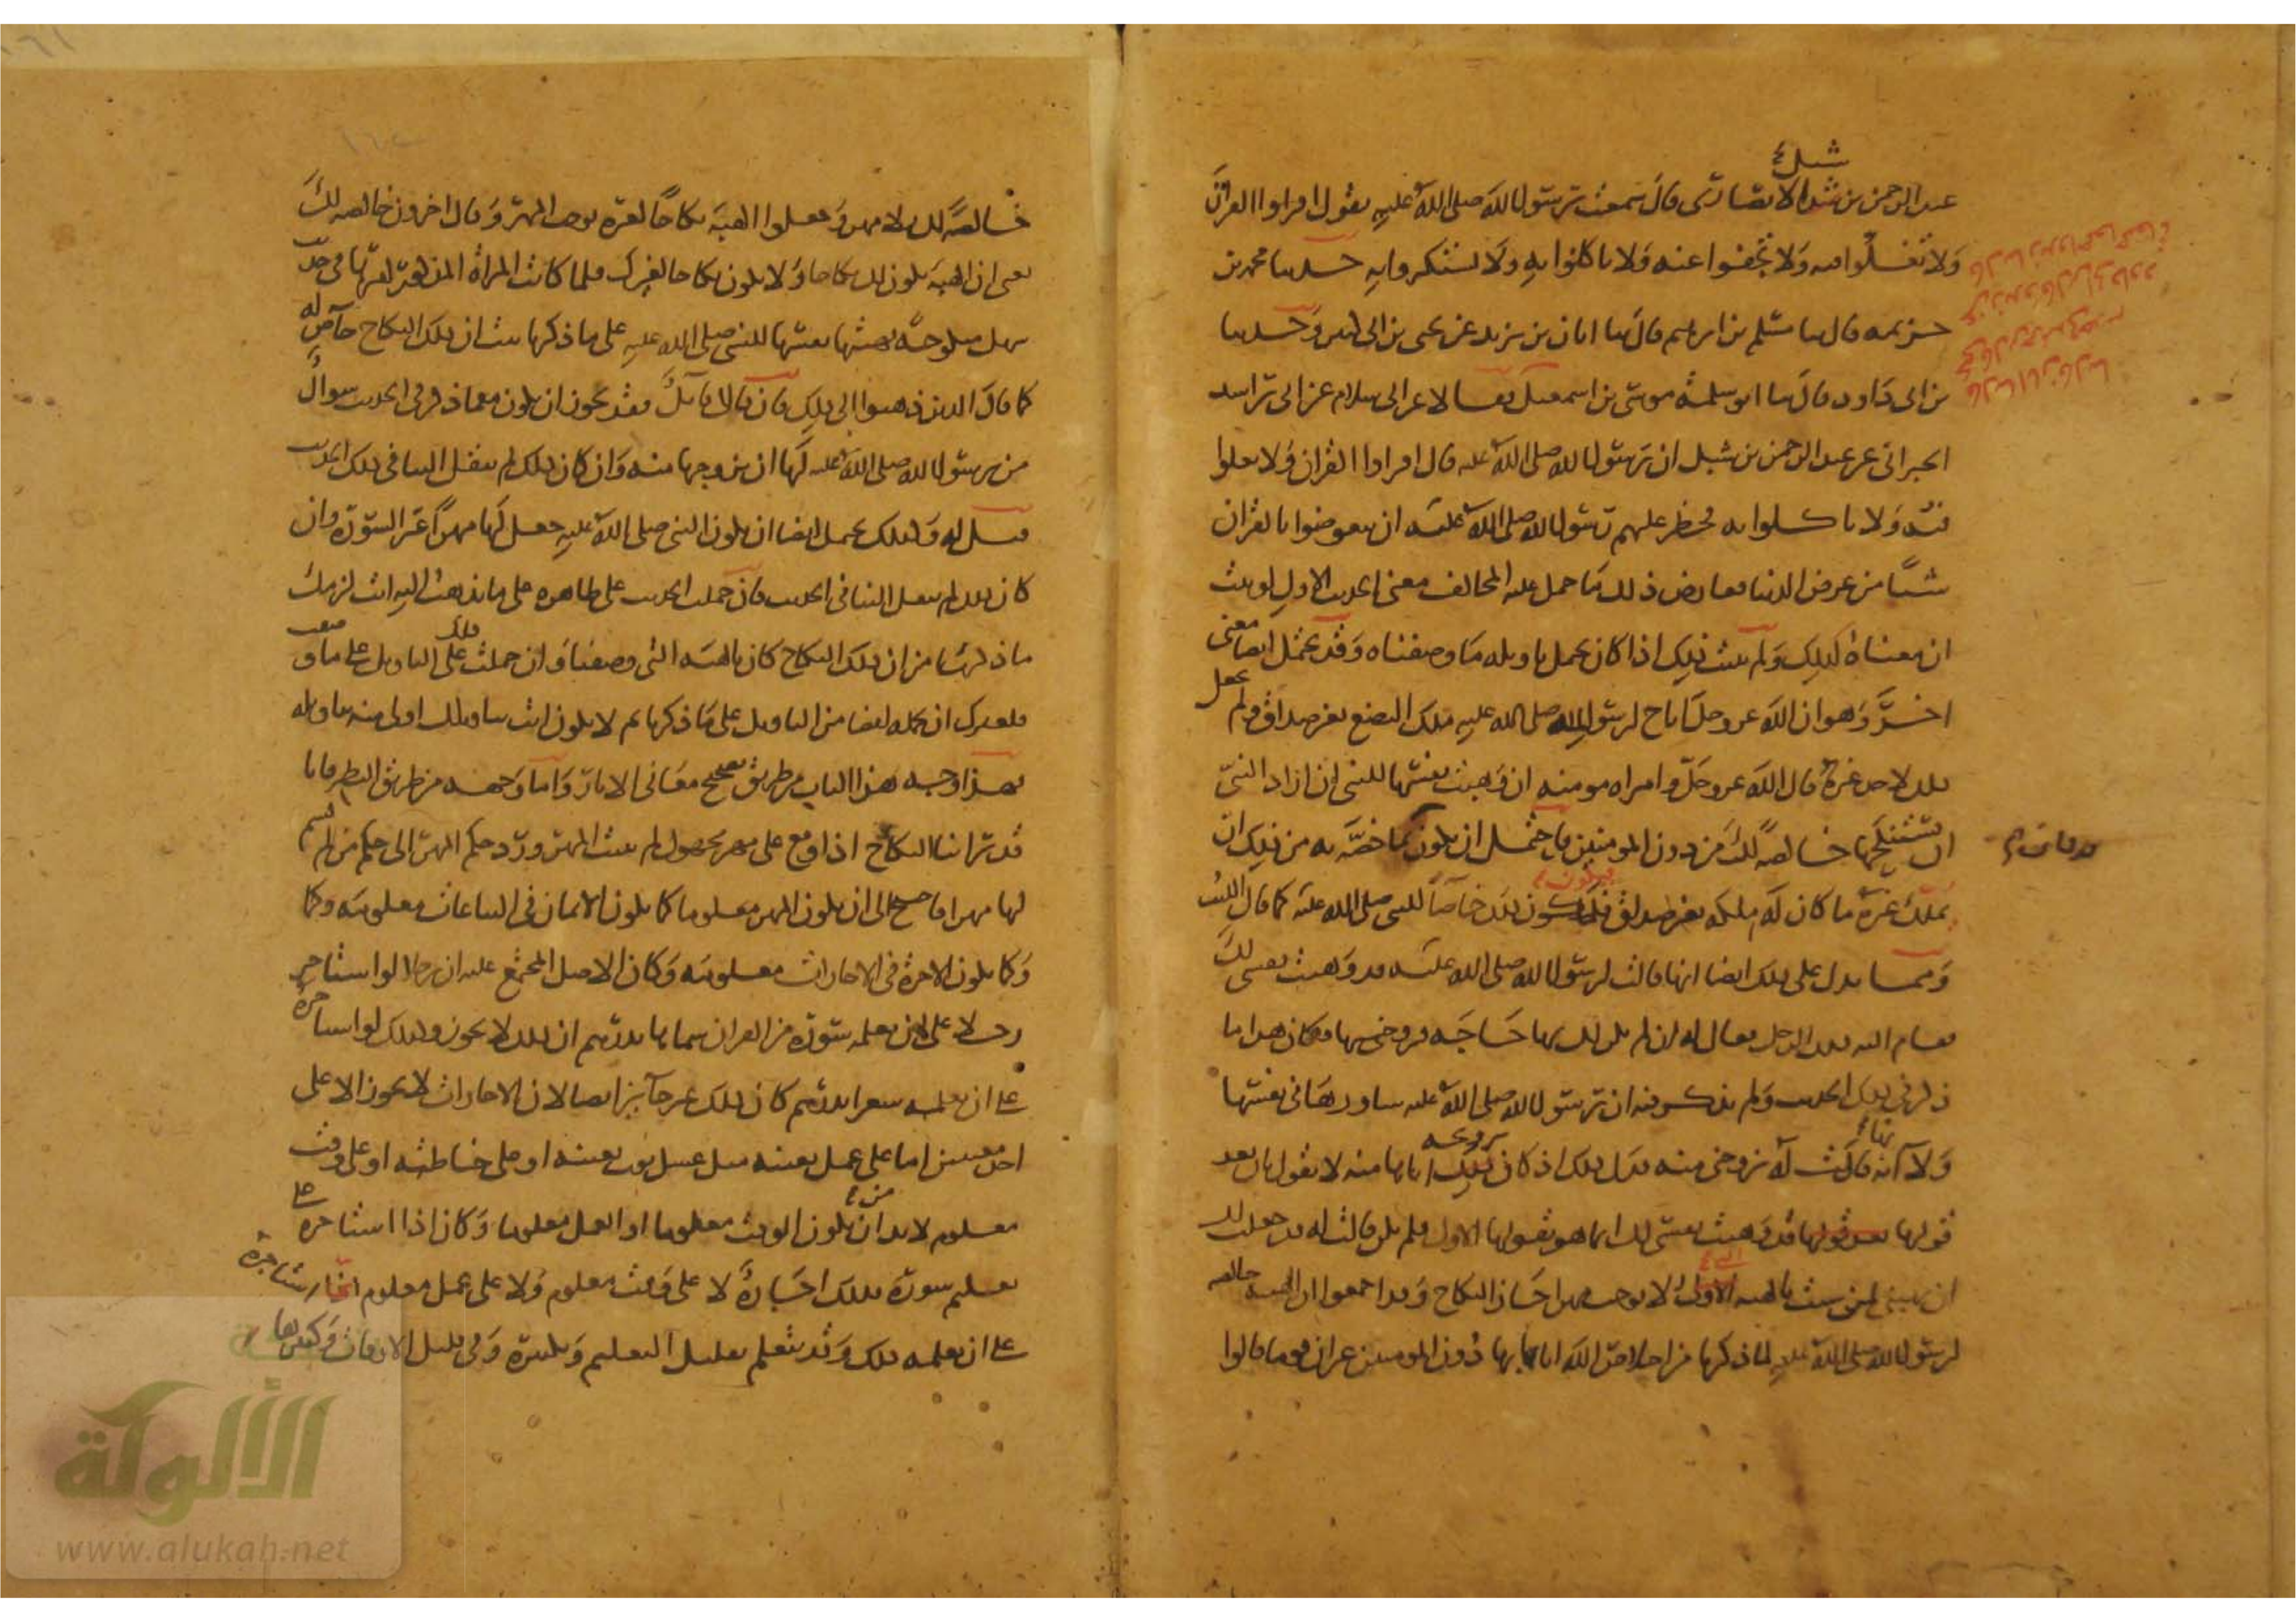 شبل
عبد الرحمن بن شبل الانصاري قال سمعت رسول الله صلى الله عليه يقول اقراوا القران
ولا تغلوا فيه ولا تجفوا عنه ولا تاكلوا به ولا تستكثروا به حدثنا محمد بن
خزيمه قال ثنا مسلم بن ابرهيم قال ثنا ابان بن يزيد عن يحيى بن ابي كثير وحدثنا
بن ابي داود قال ثنا ابو سلمة موسى بن اسمعيل ابي سلام عن ابي راشد
الحبراني عن عبد الرحمن بن شبل ان رسول الله صلى الله عليه قال اقراوا القران ولا تغلوا
فيه ولا تاكلوا به فحظر عليهم رسول الله صلى الله عليه ان يتعوضوا بالقران
شيئا من عرض الدنيا فعارض ذلك ما حمل عليه المخالف معنى الحديث الاول لو ثبت
ان معناه كذلك ولم يثبت ذلك اذا كان يحتمل تاويله ما وصفناه وقد يحتمل ايضا معنى
اخر وهو ان الله عز وجل اباح لرسول الله صلى الله عليه ملك البضع بغير صداق ولم يجعل
ذلك لاحد غيره قال الله عز وجل وامراه مومنه ان وهبت نفسها للنبي ان اراد النبي
ان يستنكحها خالصة لك من دون المومنين فاحتمل ان يكون مما خصه به من ذلك ان
يملك غيره ما كان له ملكه بغير صداق فيكون ذلك خاصا للنبي صلى الله عليه كما قال الليث
ومما يدل على ذلك ايضا انها قالت لرسول الله صلى الله عليه قد وهبت نفسي لك
فقام اليه ذلك الرجل فقال له ان لم يكن لك بها حاجه فزوجنيها فكان هذا ما
ذكر في ذلك الحديث ولم يذكر فيه ان رسول الله صلى الله عليه شاورها في نفسها
ولا انه قالت له زوجني منه فدل ذلك اذ كان تزويجه اياها منه لا بقول كان بعد
قولها قد وهبت نفسي لك انما هو بقولها الاول ولم يكن قالت له قد جعلت لك
ان تهبني لمن شئت بالهبه لا يوجب مهرا جاز النكاح وقد اجمعوا ان الهبه خالصه
لرسول الله صلى الله عليه لما ذكرنا من اختصاص الله اياه بها دون المومنين غير ان قوما قالوا
خالصة لك بلا مهر وجعلوا الهبة نكاحا لغيره يوجب المهر وقال اخرون خالصه لك
يعني ان الهبة تكون لك نكاحا ولا تكون نكاحا لغيرك فلما كانت المراة المزوجة في حديث
سهل منكوحة بهبتها نفسها للنبي صلى الله عليه على ما ذكرنا ثبت ان ذلك النكاح خاص له
كما قال الذين ذهبوا الى ذلك فان قال قايل فقد يجوز ان يكون مع ما ذكر في الحديث سوال
من رسول الله صلى الله عليه لها ان يزوجها منه وان كان ذلك لم ينقل الينا في ذلك الحديث
قيل له وكذلك يحتمل ايضا ان يكون النبي صلى الله عليه جعل لها مهرا غير السورة وان
كان ذلك لم ينقل الينا في الحديث فان حملت الحديث على ظاهره على ما تذهب اليه انت لزمك
ما ذكرنا من ان ذلك النكاح كان بالهبه التي وصفنا وان حملت ذلك على التاويل على ما وصفت
فلغيرك ان يحمله ايضا من التاويل على ما ذكرنا ثم لا تكون انت بتاويلك اولى منه بتاويله
فهذا وجه هذا الباب من طريق تصحيح معاني الاثار واما وجهه من طريق النظر فانا
قد راينا النكاح اذا وقع على مهر مجهول لم يثبت المهر ورد حكم المهر الى حكم من لم يسم
لها مهرا فاحتيج الى ان يكون المهر معلوما كما تكون الاثمان في البياعات معلومه وكما
وكما تكون الاجرة في الاجارات معلومه وكان الاصل المجتمع عليه ان رجلا لو استاجر
رجلا على ان يعلمه سورة من القران سماها بدرهم ان ذلك لا يجوز وكذلك لو استاجره
على ان يعلمه شعرا بدرهم كان ذلك غير جايز ايضا لان الاجارات لا تجوز الا على
احد معنيين اما على عمل بعينه مثل غسل ثوب بعينه او على خياطته او على وقت
معلوم لا بد من ان يكون الوقت معلوما او العمل معلوما وكان اذا استاجره على
تعليم سورة فتلك اجارة لا على وقت معلوم ولا على عمل معلوم انما استاجره
على ان يعلمه ذلك وقد يتعلم بقليل التعليم وبكثيره وفي قليل الاوقات وكثيرها
الألوكة
www.alukah.net